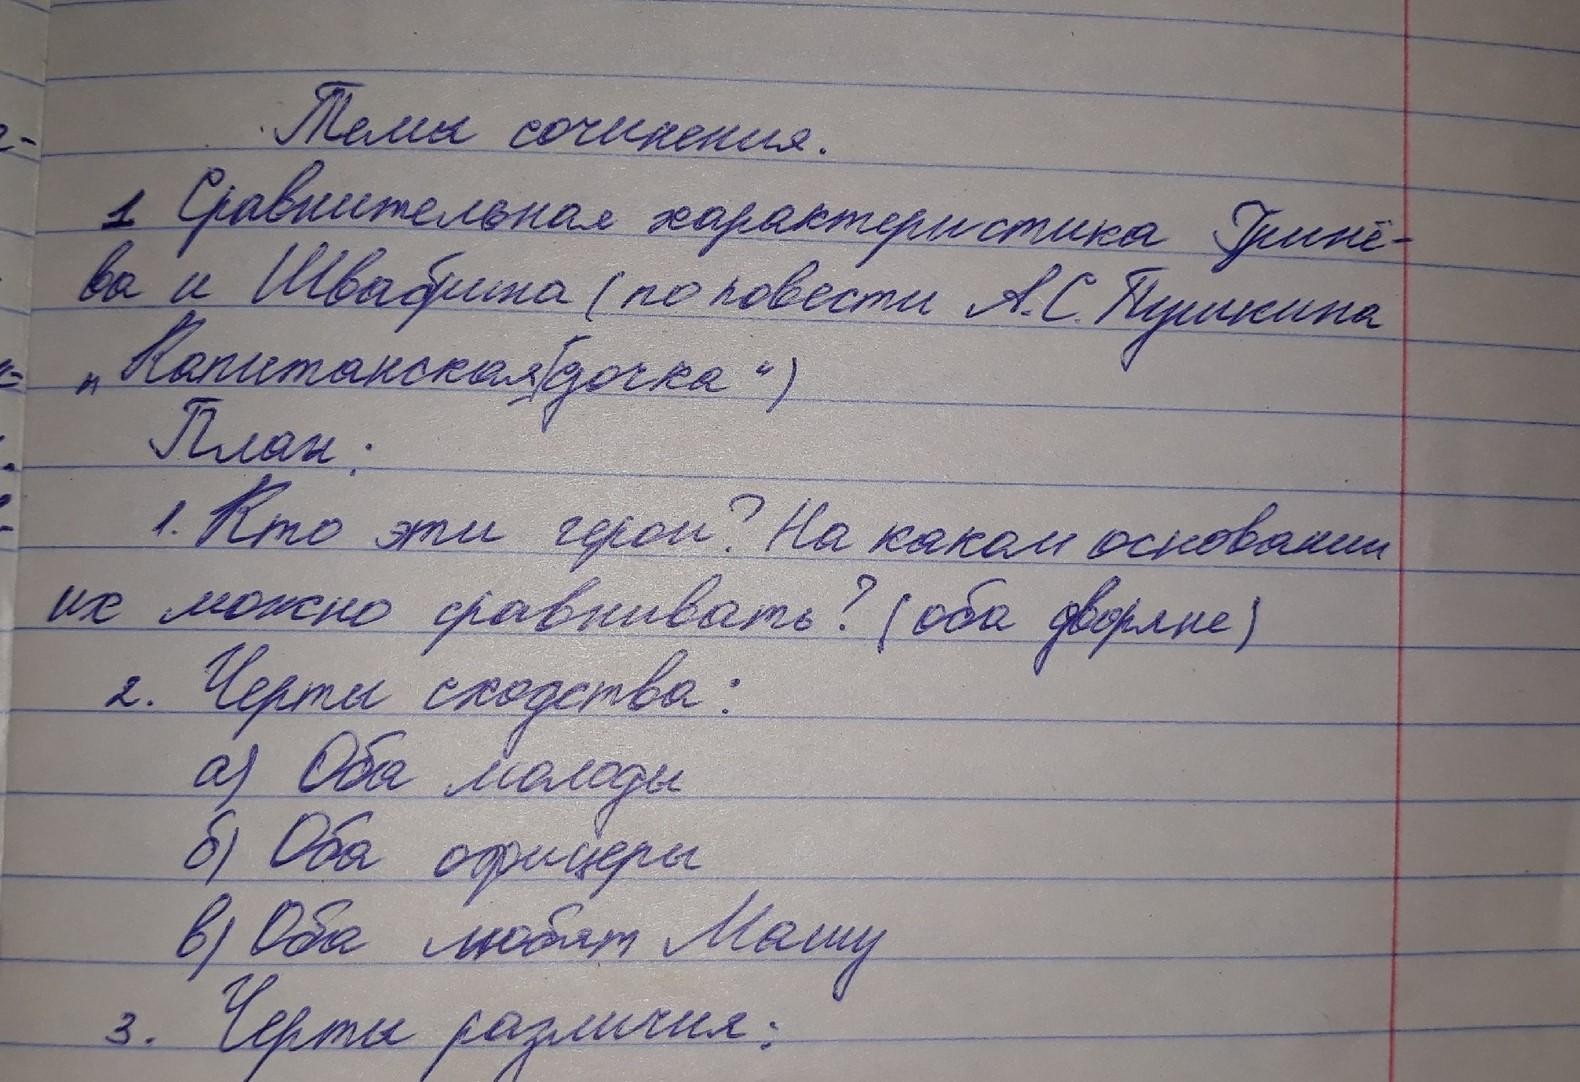 Темы сочинения.
1 Сравнительная характеристика Гринё-
ва и Швабрина (по повести А.С. Пушкина
„Капитанская дочка“)
План:
1. Кто эти герои? На каком основании
их можно сравнивать? (оба дворяне)
2. Черты сходства:
а) Оба молоды
б) Оба офицеры
в) Оба любят Машу
3. Черты различия: